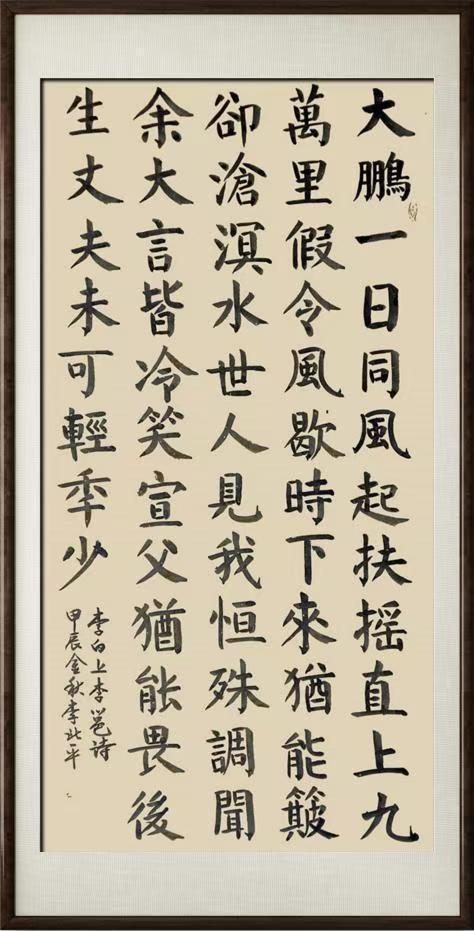 大鵬一日同風起扶摇直上九
萬里假令風歇時下來猶能簸
卻滄溟水世人見我恒殊調聞
余大言皆冷笑宣父猶能畏後
生丈夫未可輕秊少
李白上李邕诗
甲辰金秋李北平